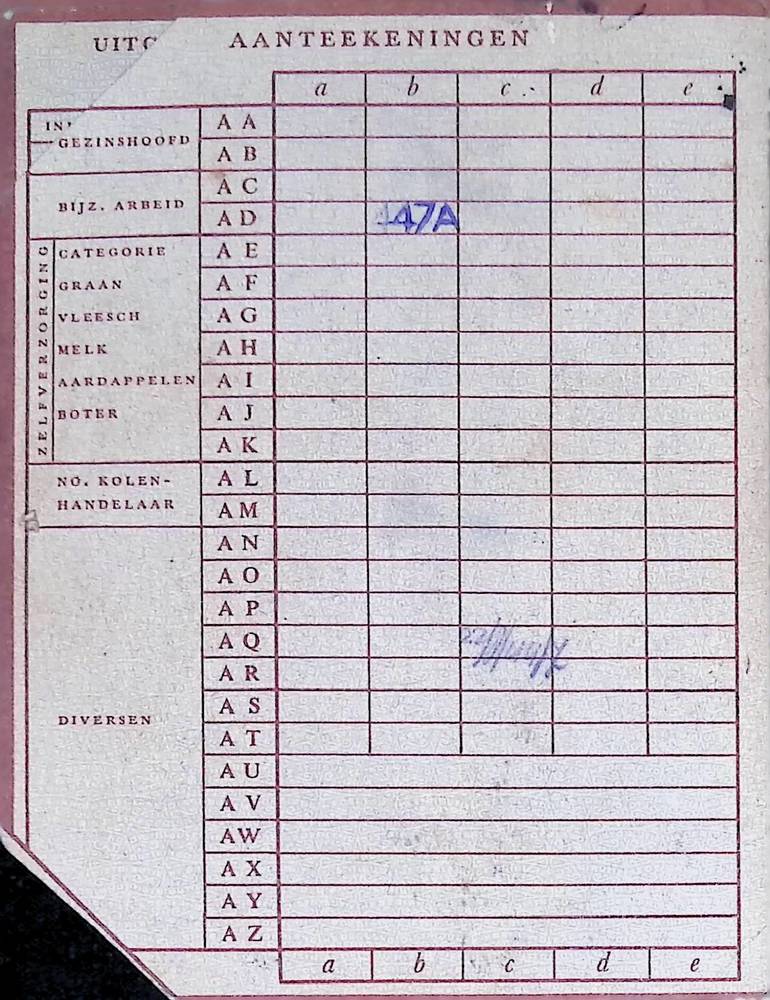 AANTEEKENINGEN
a b c d e
GEZINSHOOFD
A A
A B
BIJZ. ARBEID
A C
A D 47A
ZELFVERZORGING
CATEGORIE A E
GRAAN A F
VLEESCH A G
MELK A H
AARDAPPELEN A I
BOTER A J
A K
NO. KOLEN- A L
HANDELAAR A M
A N
A O
A P
A Q
A R
DIVERSEN
A S
A T
A U
A V
A W
A X
A Y
A Z
a b c d e